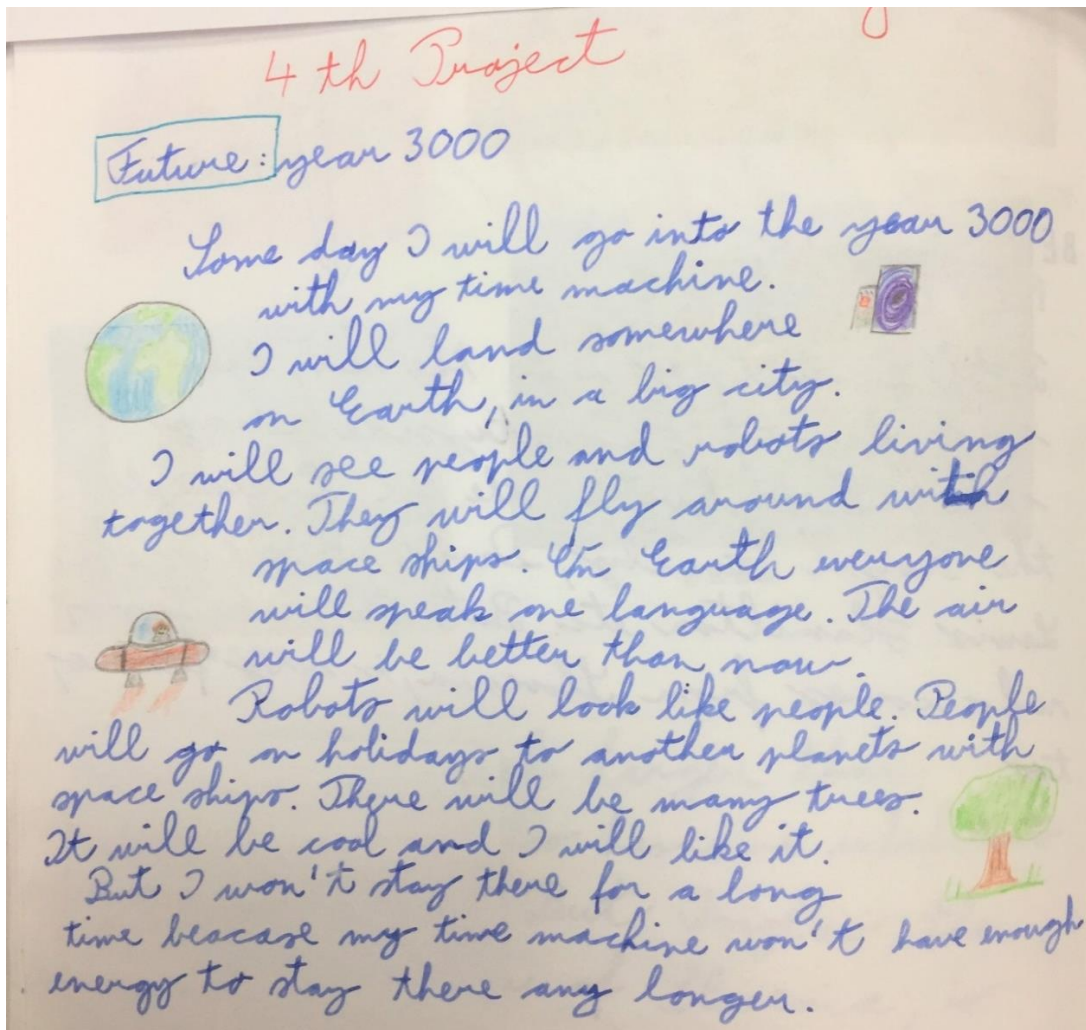 4 th Project
Future: year 3000
Some day I will go into the year 3000
with my time machine.
I will land somewhere
on Earth, in a big city.
I will see people and robots living
together. They will fly around with
space ships. On Earth everyone
will speak one language. The air
will be better than now.
Robots will look like people. People
will go on holidays to another planets with
space ships. There will be many trees.
It will be cool and I will like it.
But I won't stay there for a long
time beacase my time machine won't have enough
energy to stay there any longer.